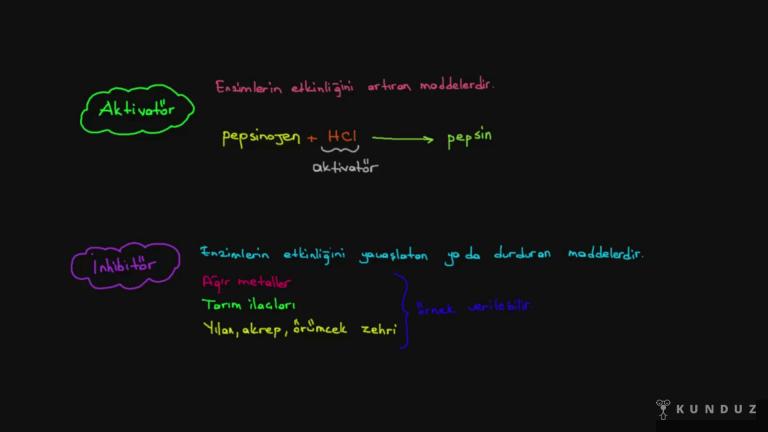 Aktivatör
Enzimlerin etkinliğini artıran maddelerdir.
pepsinojen + HCl → pepsin
aktivatör
İnhibitör
Enzimlerin etkinliğini yavaşlatan ya da durduran maddelerdir.
Ağır metaller
Tarım ilaçları
Yılan, akrep, örümcek zehri
örnek verilebilir.
KUNDUZ